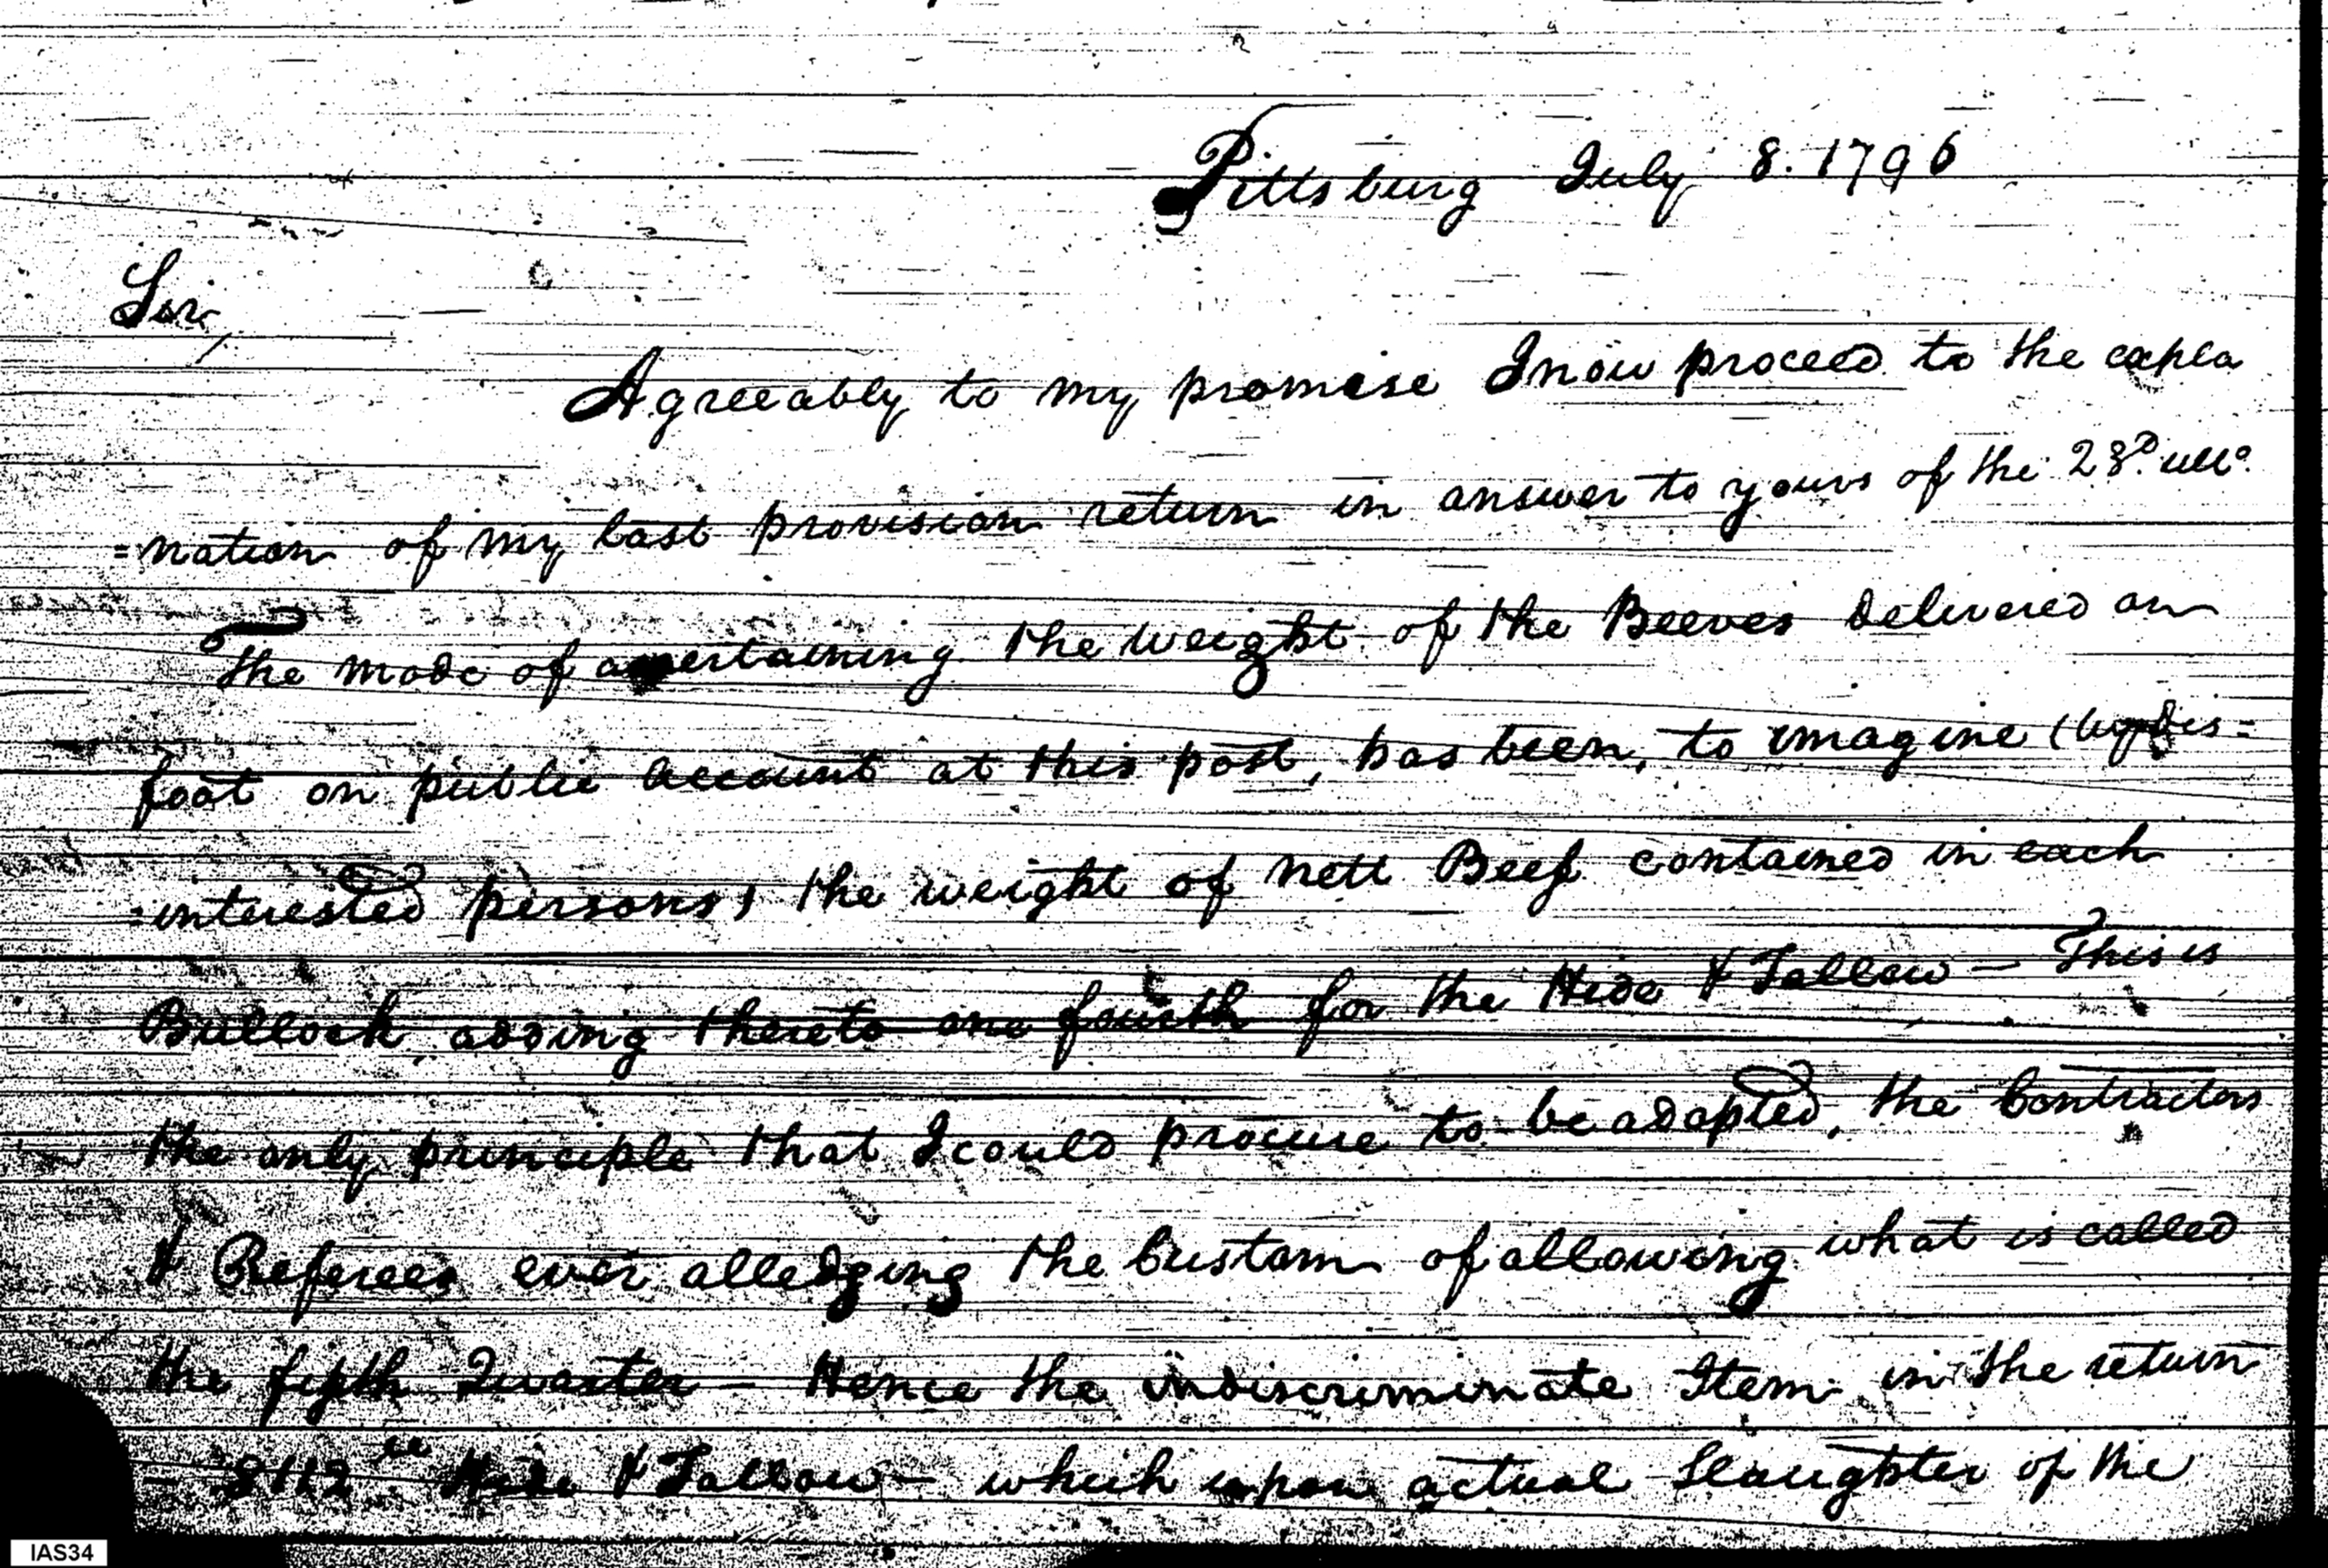 Pittsburg July 8. 1796
Sir,
Agreeably to my promise I now proceed to the expla
=nation of my last provision return in answer to yours of the 23.D ullo.
The mode of ascertaining the weight of the Beeves delivered on
foot on public account at this post, has been, to imagine (by dis=
=interested persons) the weight of nett Beef contained in each
Bullock adding thereto one fourth for the Hide & Tallow — This is
the only principle that I could procure to be adopted, the Contractors
& Referees ever alledging the Custom of allowing what is called
the fifth Quarter — Hence the indiscriminate Item in the return
— 8112 Hide & Tallow — which upon actual Slaughter of the
IAS34